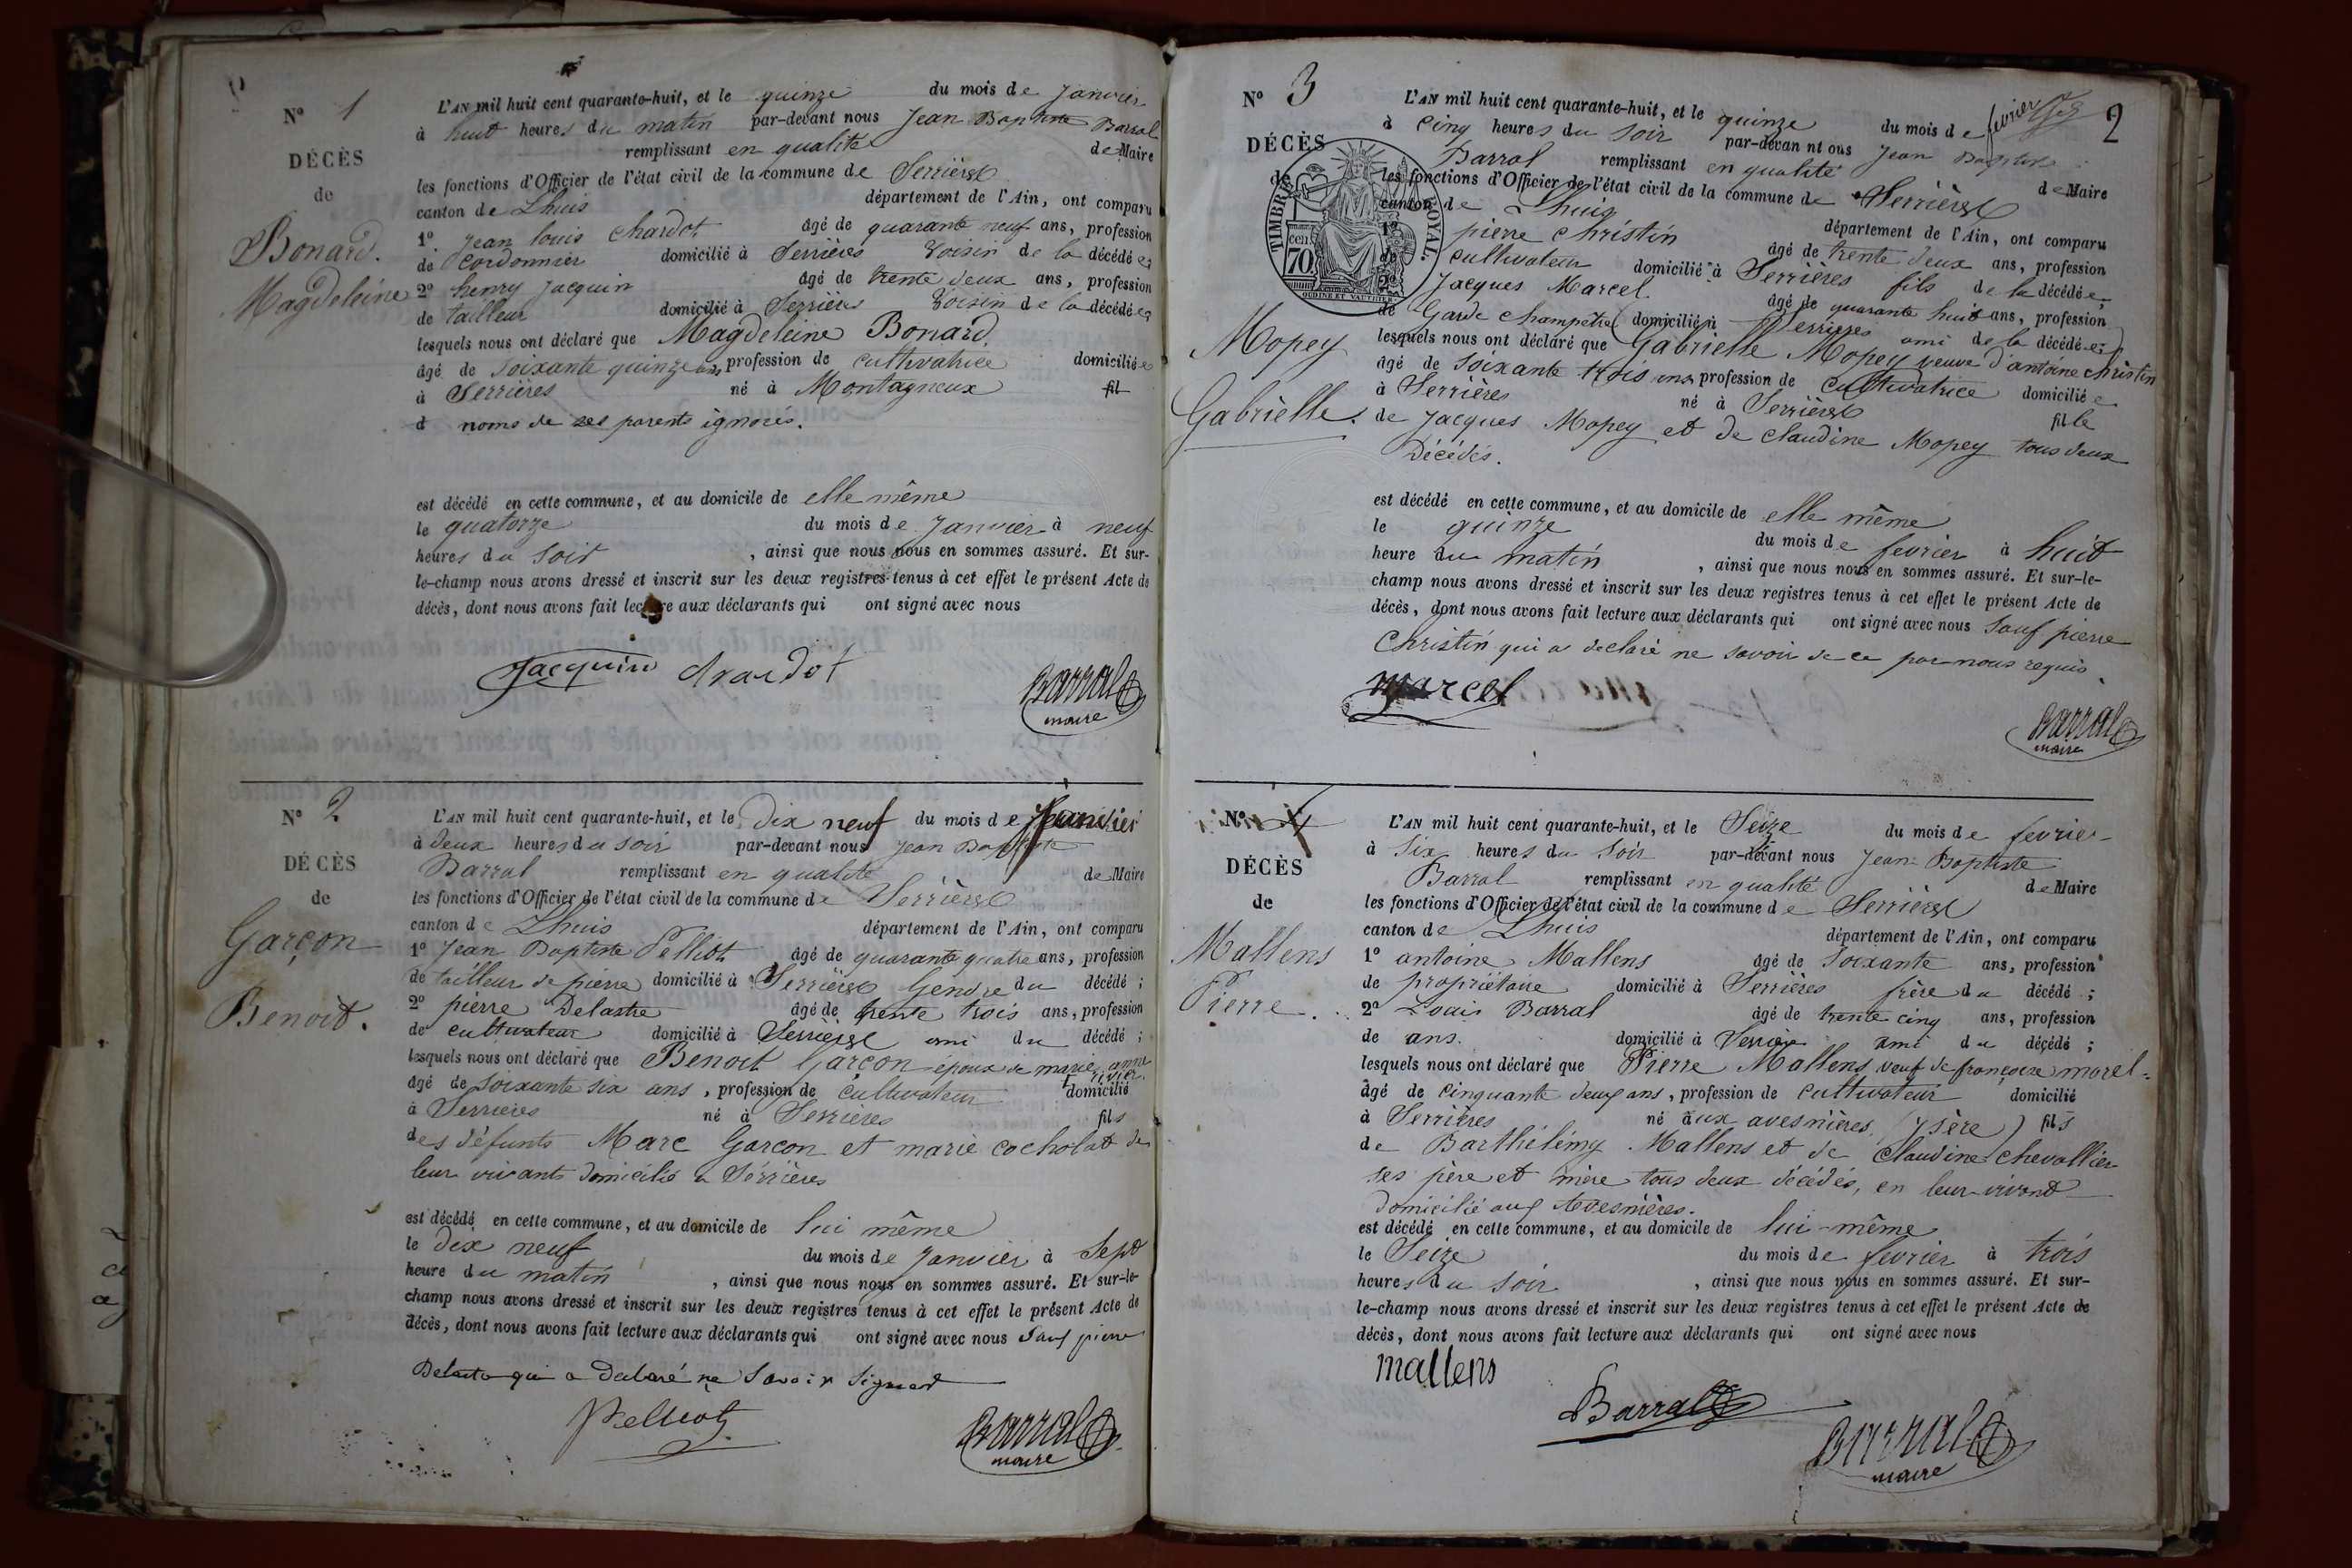 N° 1
DÉCÈS
de
Bonard.
Magdeleine
L'AN mil huit cent quarante-huit, et le quinze du mois de Janvier
à huit heures du matin par-devant nous Jean Baptiste Barral
remplissant en qualité de Maire
les fonctions d'Officier de l'état civil de la commune de Serrières
canton de Lhuis département de l'Ain, ont comparu
1° Jean louis Chardot âgé de quarante neuf ans, profession
de Cordonnier domicilié à Serrières voisin de la décédée;
2° henry Jacquin âgé de trente deux ans, profession
de tailleur domicilié à Serrières voisin de la décédée;
lesquels nous ont déclaré que Magdeleine Bonard,
âgé de Soixante quinze ans profession de Cultivatrice domiciliée
à Serrières né à Montagneux fil
d noms de ses parents ignorés.
est décédé en cette commune, et au domicile de elle même
le quatorze du mois de Janvier à neuf
heures du Soir , ainsi que nous nous en sommes assuré. Et sur-
le-champ nous avons dressé et inscrit sur les deux registres tenus à cet effet le présent Acte de
décès, dont nous avons fait lecture aux déclarants qui ont signé avec nous
Jacquin Chardot Barral
maire
N° 2
DÉCÈS
de
Garçon
Benoit.
L'AN mil huit cent quarante-huit, et le Dix neuf du mois de Janvier
à deux heures du soir par-devant nous Jean Baptiste
Barral remplissant en qualité de Maire
les fonctions d'Officier de l'état civil de la commune de Serrières
canton de Lhuis département de l'Ain, ont comparu
1° Jean Baptiste Pelliot âgé de quarante quatre ans, profession
de tailleur de pierre domicilié à Serrières Gendre du décédé ;
2° pierre Delastre âgé de trente trois ans, profession
de cultivateur domicilié à Serrières ami du décédé ;
lesquels nous ont déclaré que Benoit Garçon époux de marie anne
âgé de soixante six ans , profession de Cultivateur domicilié
à Serrières né à Serrières fils
des défunts Marc Garçon et marie cocholat de
leur vivants domicilié a Sérrières
est décédé en cette commune, et au domicile de lui même
le dix neuf du mois de Janvier à Sept
heure du matin , ainsi que nous nous en sommes assuré. Et sur-le-
champ nous avons dressé et inscrit sur les deux registres tenus à cet effet le présent Acte de
décès, dont nous avons fait lecture aux déclarants qui ont signé avec nous Sauf pierre
Delastre qui a Déclaré ne Savoir Signer
Pelliot Barral
maire
2
N° 3
DÉCÈS
de
Mopey
Gabrielle.
TIMBRE ROYAL.
cen. 70
L'AN mil huit cent quarante-huit, et le quinze du mois de fevrier
à Cinq heures du Soir par-devan nt ous Jean Baptiste
Barral remplissant en qualité de Maire
les fonctions d'Officier de l'état civil de la commune de Serrières
canton de Lhuis département de l'Ain, ont comparu
1° pierre Christin âgé de trente deux ans, profession
de Cultivateur domicilié à Serrières fils de la décédée;
2° Jacques Marcel âgé de quarante huit ans, profession
de Garde champêtre domicilié à Serrieres ami de la décédée;
lesquels nous ont déclaré que Gabrielle Mopey veuve d'antoine christin
âgé de Soixante trois ans profession de Cultivatrice domiciliée
à Serrières né à Serrières fille
de Jacques Mopey et de Claudine Mopey tous deux
Décédés.
est décédé en cette commune, et au domicile de elle même
le quinze du mois de fevrier à huit
heure du matin , ainsi que nous nous en sommes assuré. Et sur-le-
champ nous avons dressé et inscrit sur les deux registres tenus à cet effet le présent Acte de
décès, dont nous avons fait lecture aux déclarants qui ont signé avec nous Sauf pierre
Christin qui a déclaré ne savoir de ce par nous requis.
marcel Barral
maire
N° 4
DÉCÈS
de
Mallens
Pierre.
L'AN mil huit cent quarante-huit, et le Seize du mois de fevrier
à Six heures du Soir par-devant nous Jean Baptiste
Barral remplissant en qualité de Maire
les fonctions d'Officier de l'état civil de la commune de Serrières
canton de Lhuis département de l'Ain, ont comparu
1° antoine Mallens âgé de Soixante ans, profession
de propriétaire domicilié à Serrières frère du décédé ;
2° Louis Barral âgé de trente cinq ans, profession
de ans. domicilié à Serrières ami du décédé ;
lesquels nous ont déclaré que Pierre Mallens veuf de françoise morel
âgé de Cinquante deux ans , profession de Cultivateur domicilié
à Serrières né aux avesnières (ysère) fils
de Barthélémy Mallens et de Claudine Chevallier
ses père et mère tous deux décédés, en leur vivant
domicilié aux Avesnières.
est décédé en cette commune, et au domicile de lui-même
le Seize du mois de fevrier à trois
heures du Soir , ainsi que nous nous en sommes assuré. Et sur-
le-champ nous avons dressé et inscrit sur les deux registres tenus à cet effet le présent Acte de
décès, dont nous avons fait lecture aux déclarants qui ont signé avec nous
mallens
Barral Barral
maire